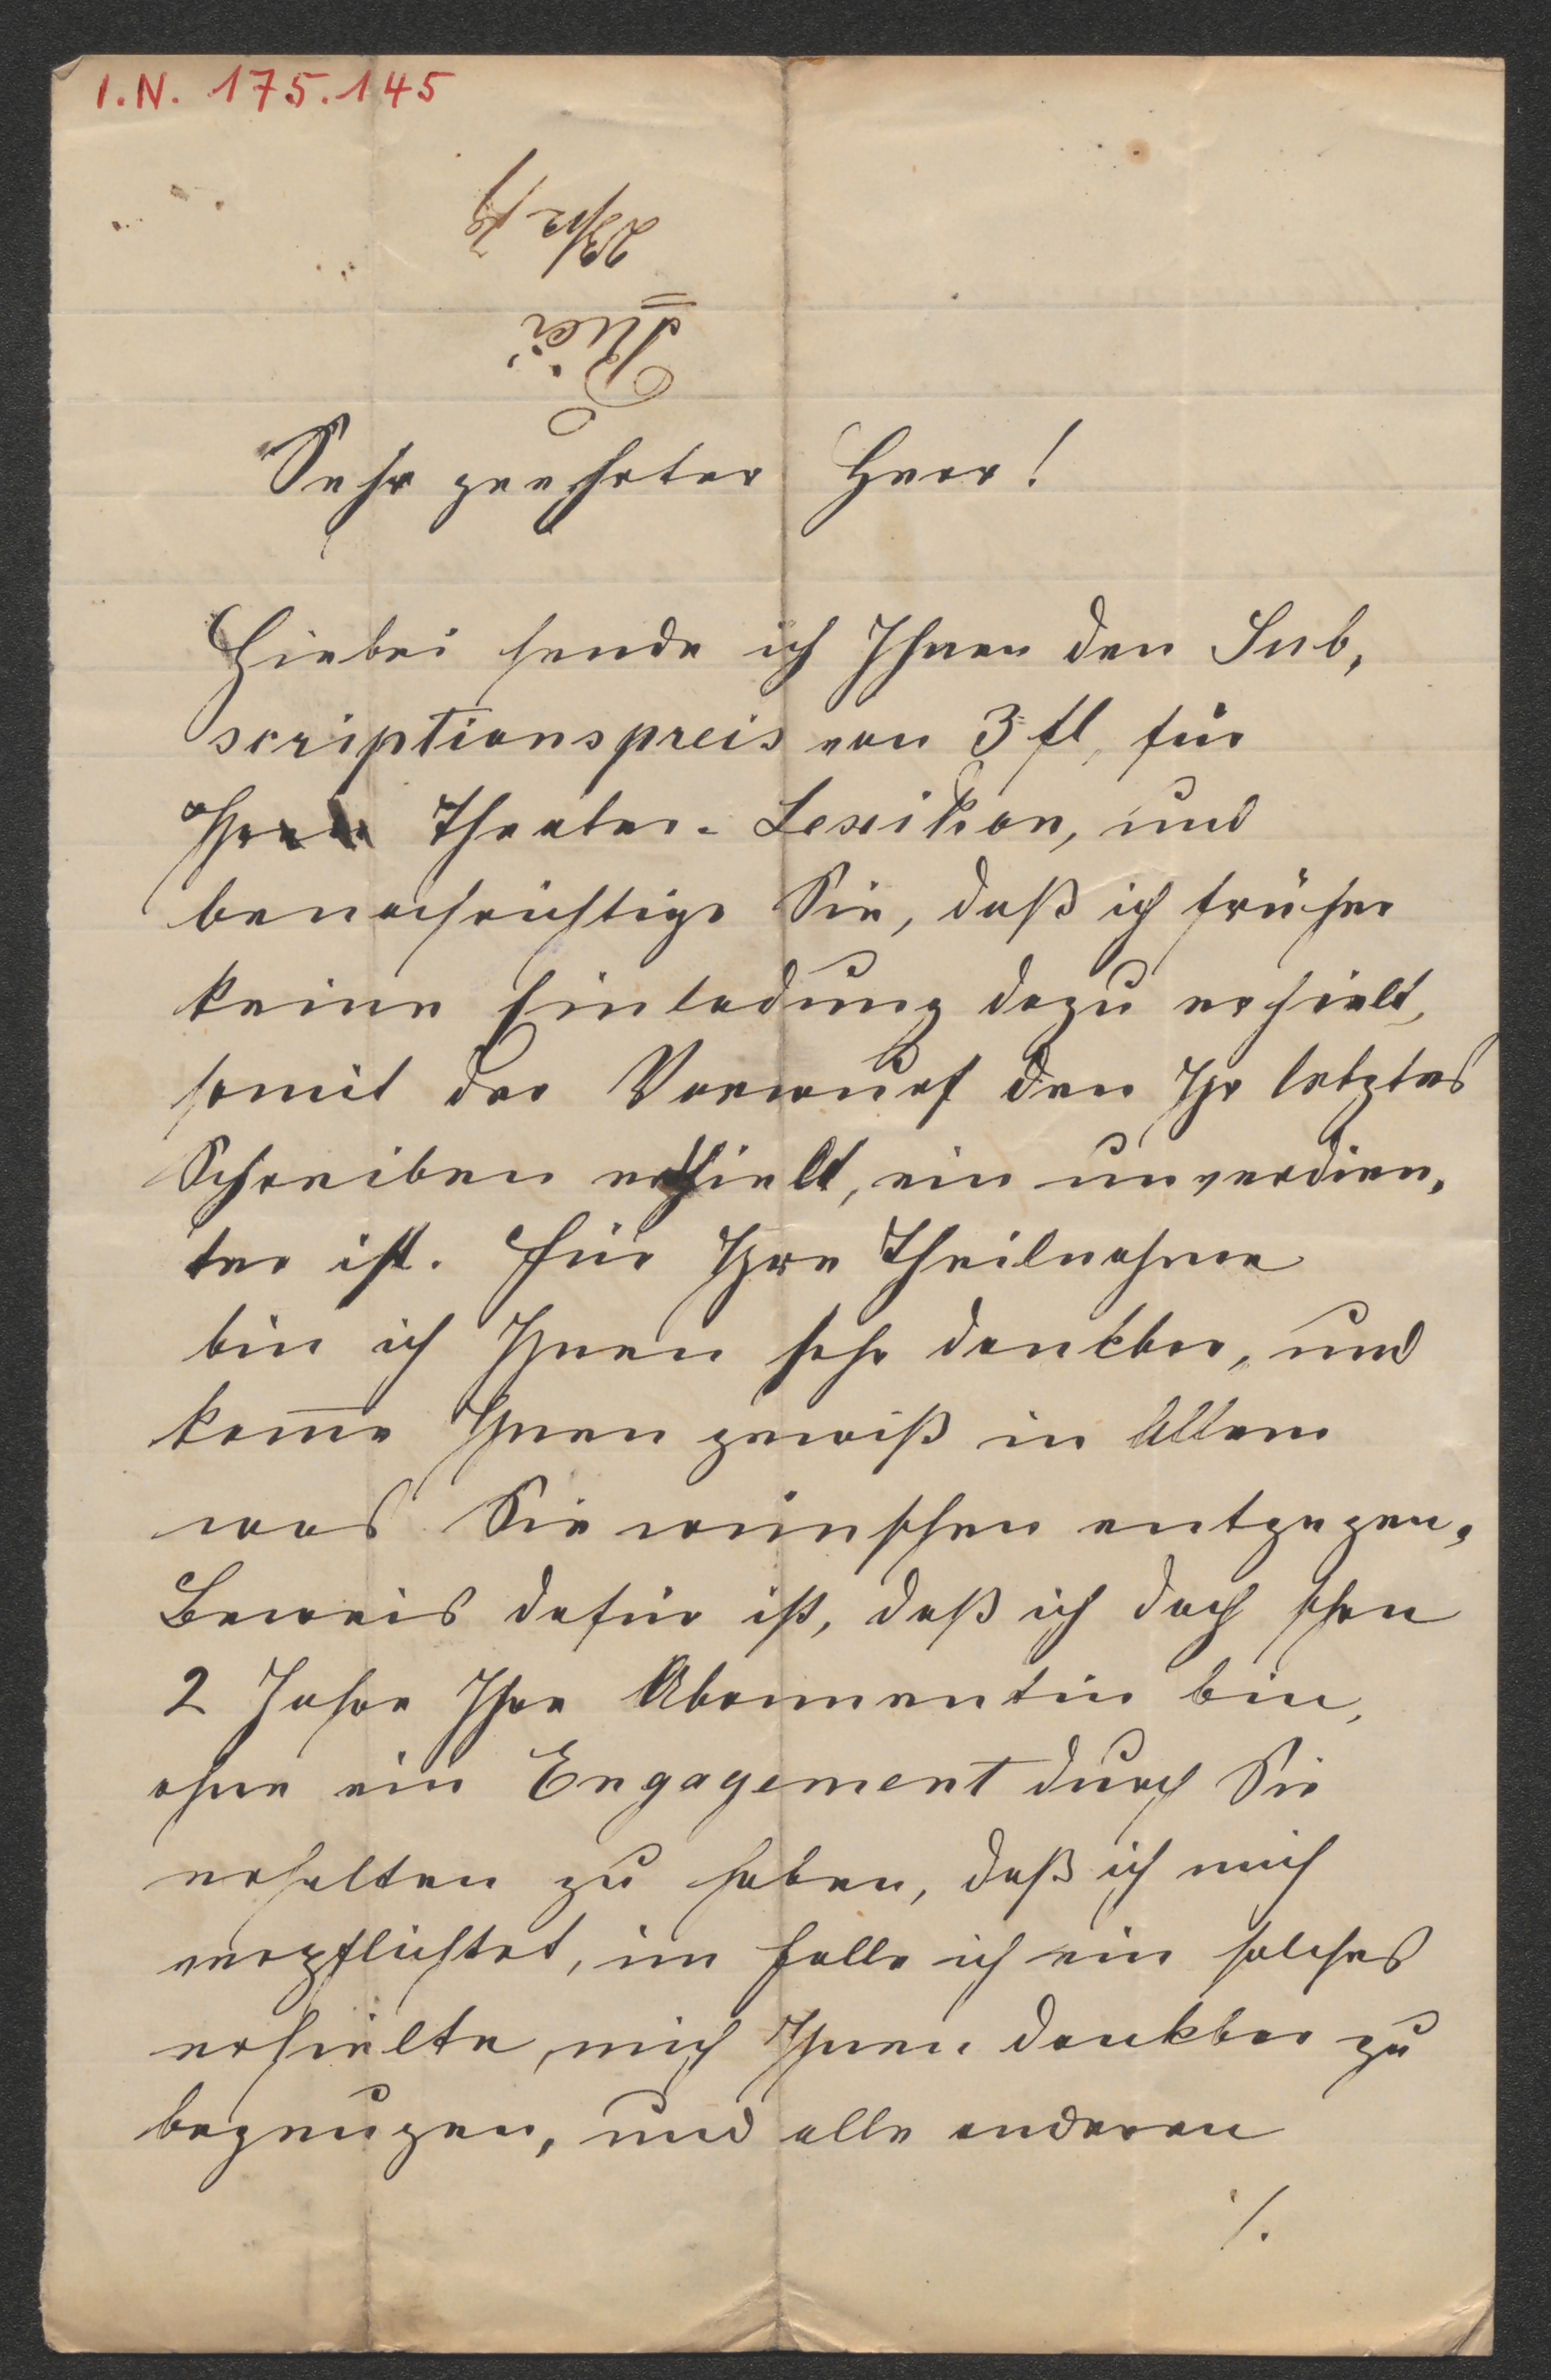 I.N. 175.145
23/12 79
Sehr geehrter Herr!
Hiebei sende ich Ihnen den Sub,
scriptionspreis von 3 fl, für
Theater-Lexikon, und
benachrichtige Sie, daß ich früher
keine Einladung dazu erhielt,
somit der Vorwurf den Ihr letztes
Schreiben enthielt, ein unverdien,
ter ist. Für Ihre Theilnahme
bin ich Ihnen sehr dankbar, und
kom̄e Ihnen gewiß in Allem
was Sie wünschen entgegen,
Beweis dafür ist, daß ich doch schon
2 Jahre Ihre Abonnentin bin,
ohne ein Engagement durch Sie
erhalten zu haben, daß ich mich
verpflichtet, im Falle ich ein solches
erhielte, mich Ihnen dankbar zu
bezeugen, und alle anderen
./.